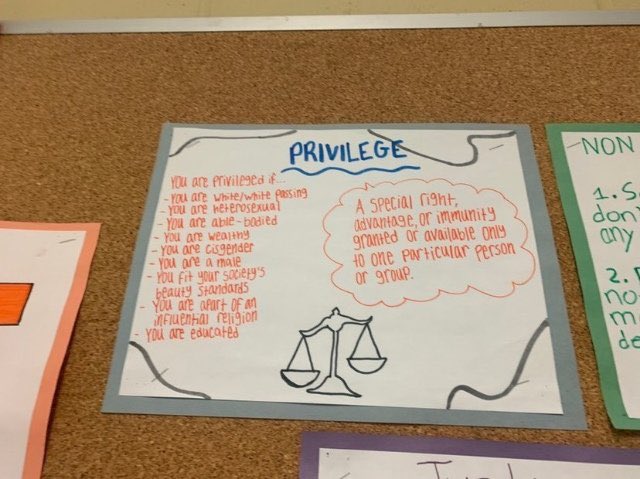 PRIVILEGE
You are privileged if...
- You are white/white passing
- You are heterosexual
- You are able-bodied
- You are wealthy
- You are cisgender
- You are a male
- You fit your society's
beauty standards
- You are apart of an
influential religion
- You are educated
A special right,
advantage, or immunity
granted or available only
to one particular person
or group.
NON
1. S
don'
any
2.
no
m
de